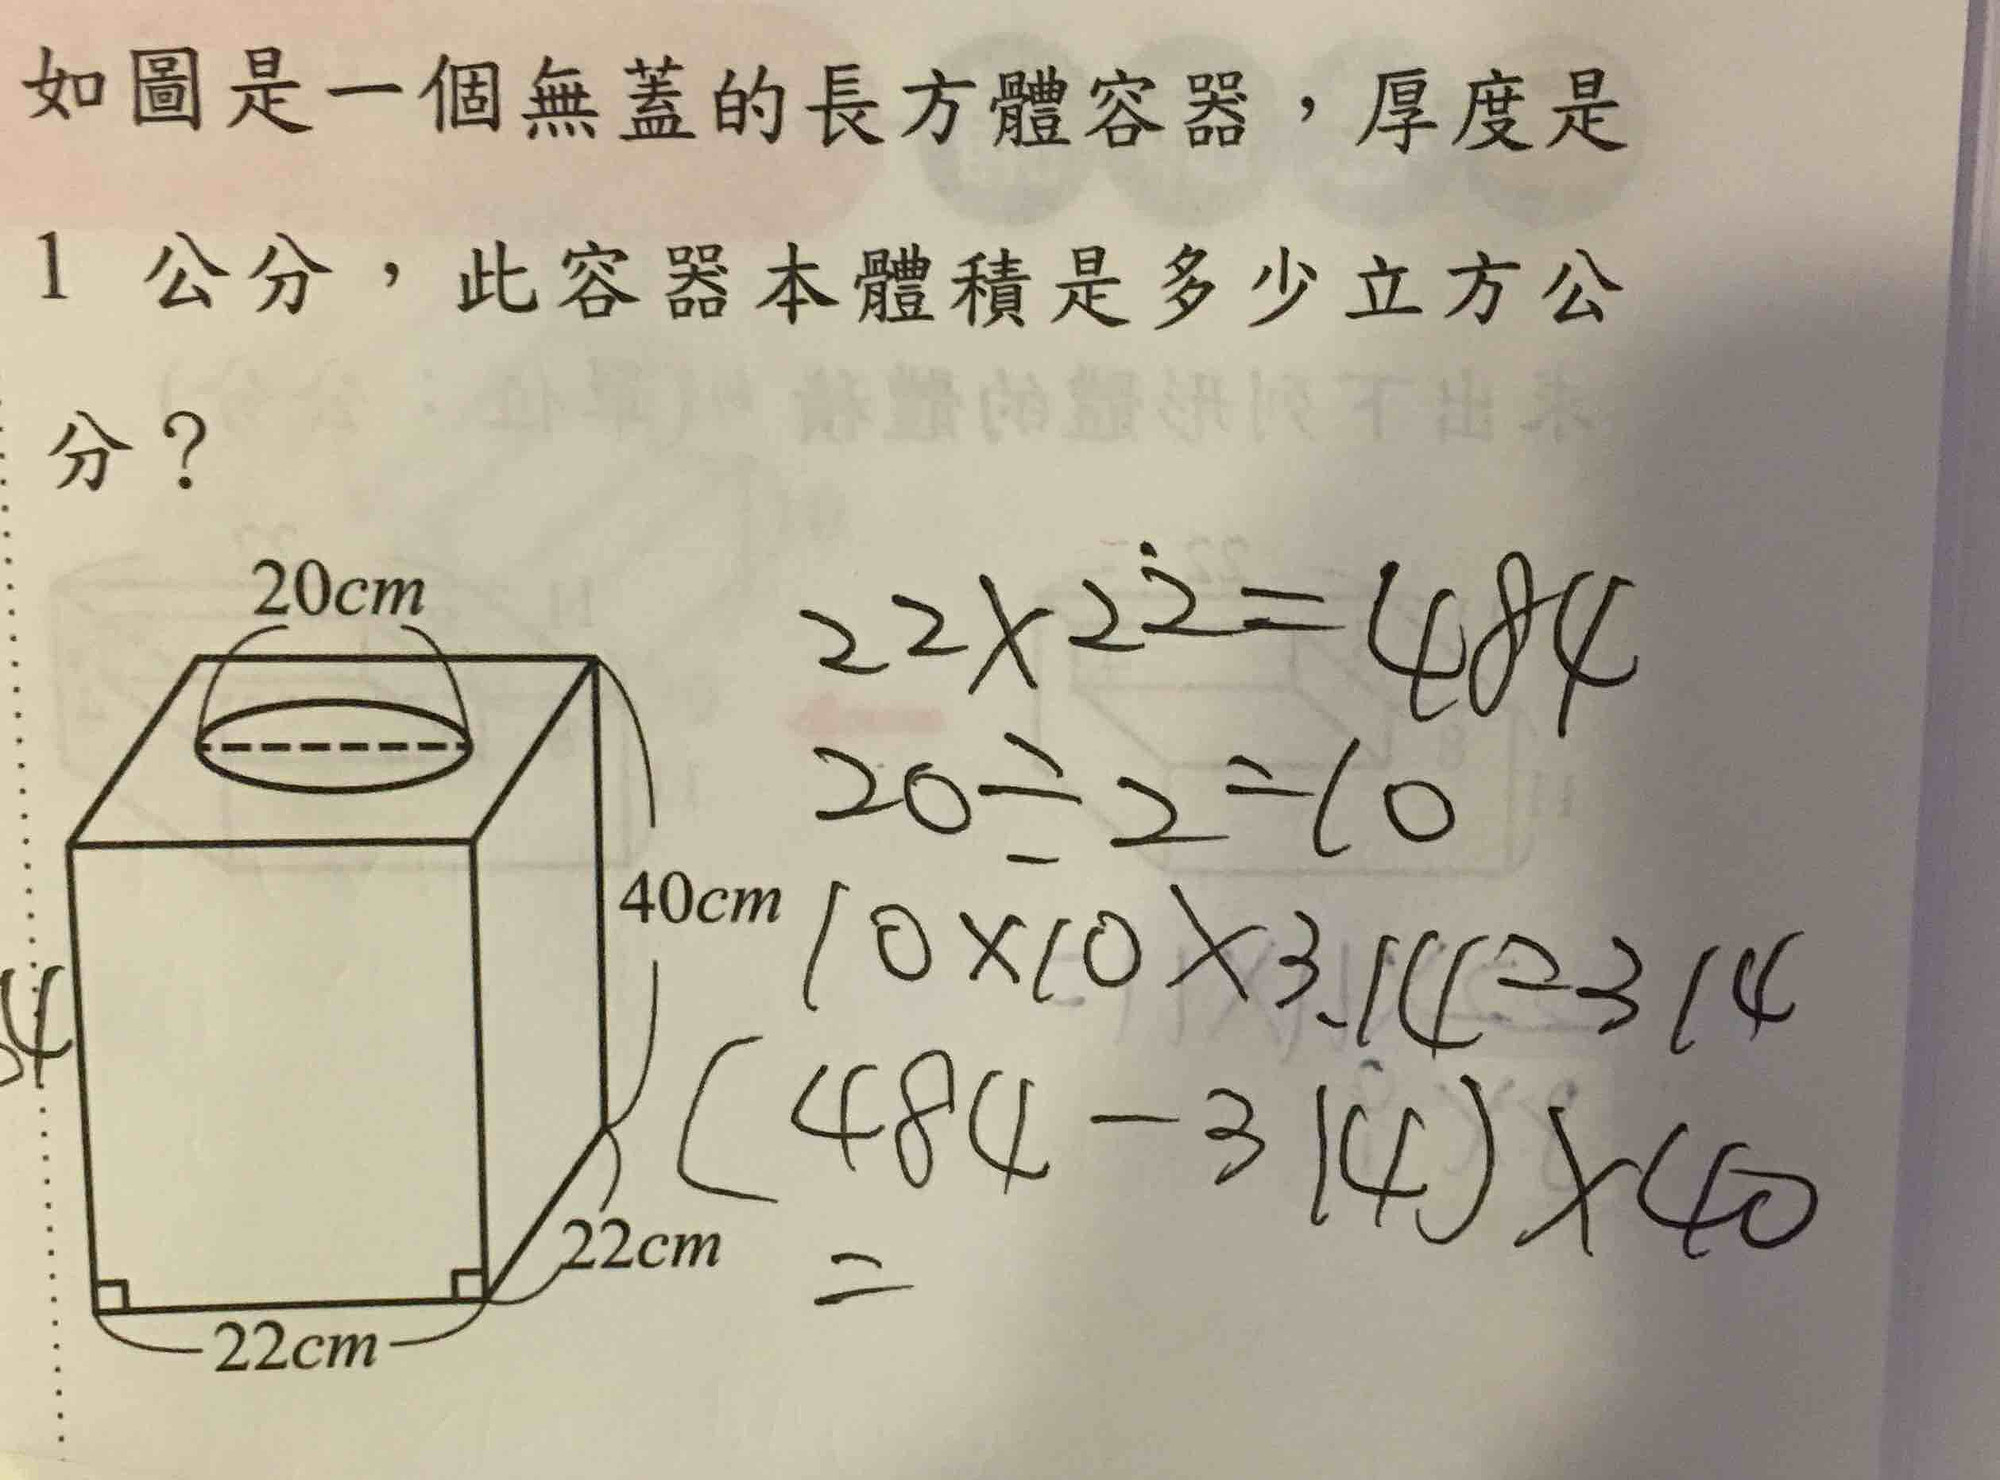 如圖是一個無蓋的長方體容器，厚度是
1 公分，此容器本體積是多少立方公
分？
20cm
40cm
22cm
22cm
22×22=484
20÷2=10
10×10×3.14=314
(484-314)×40
=